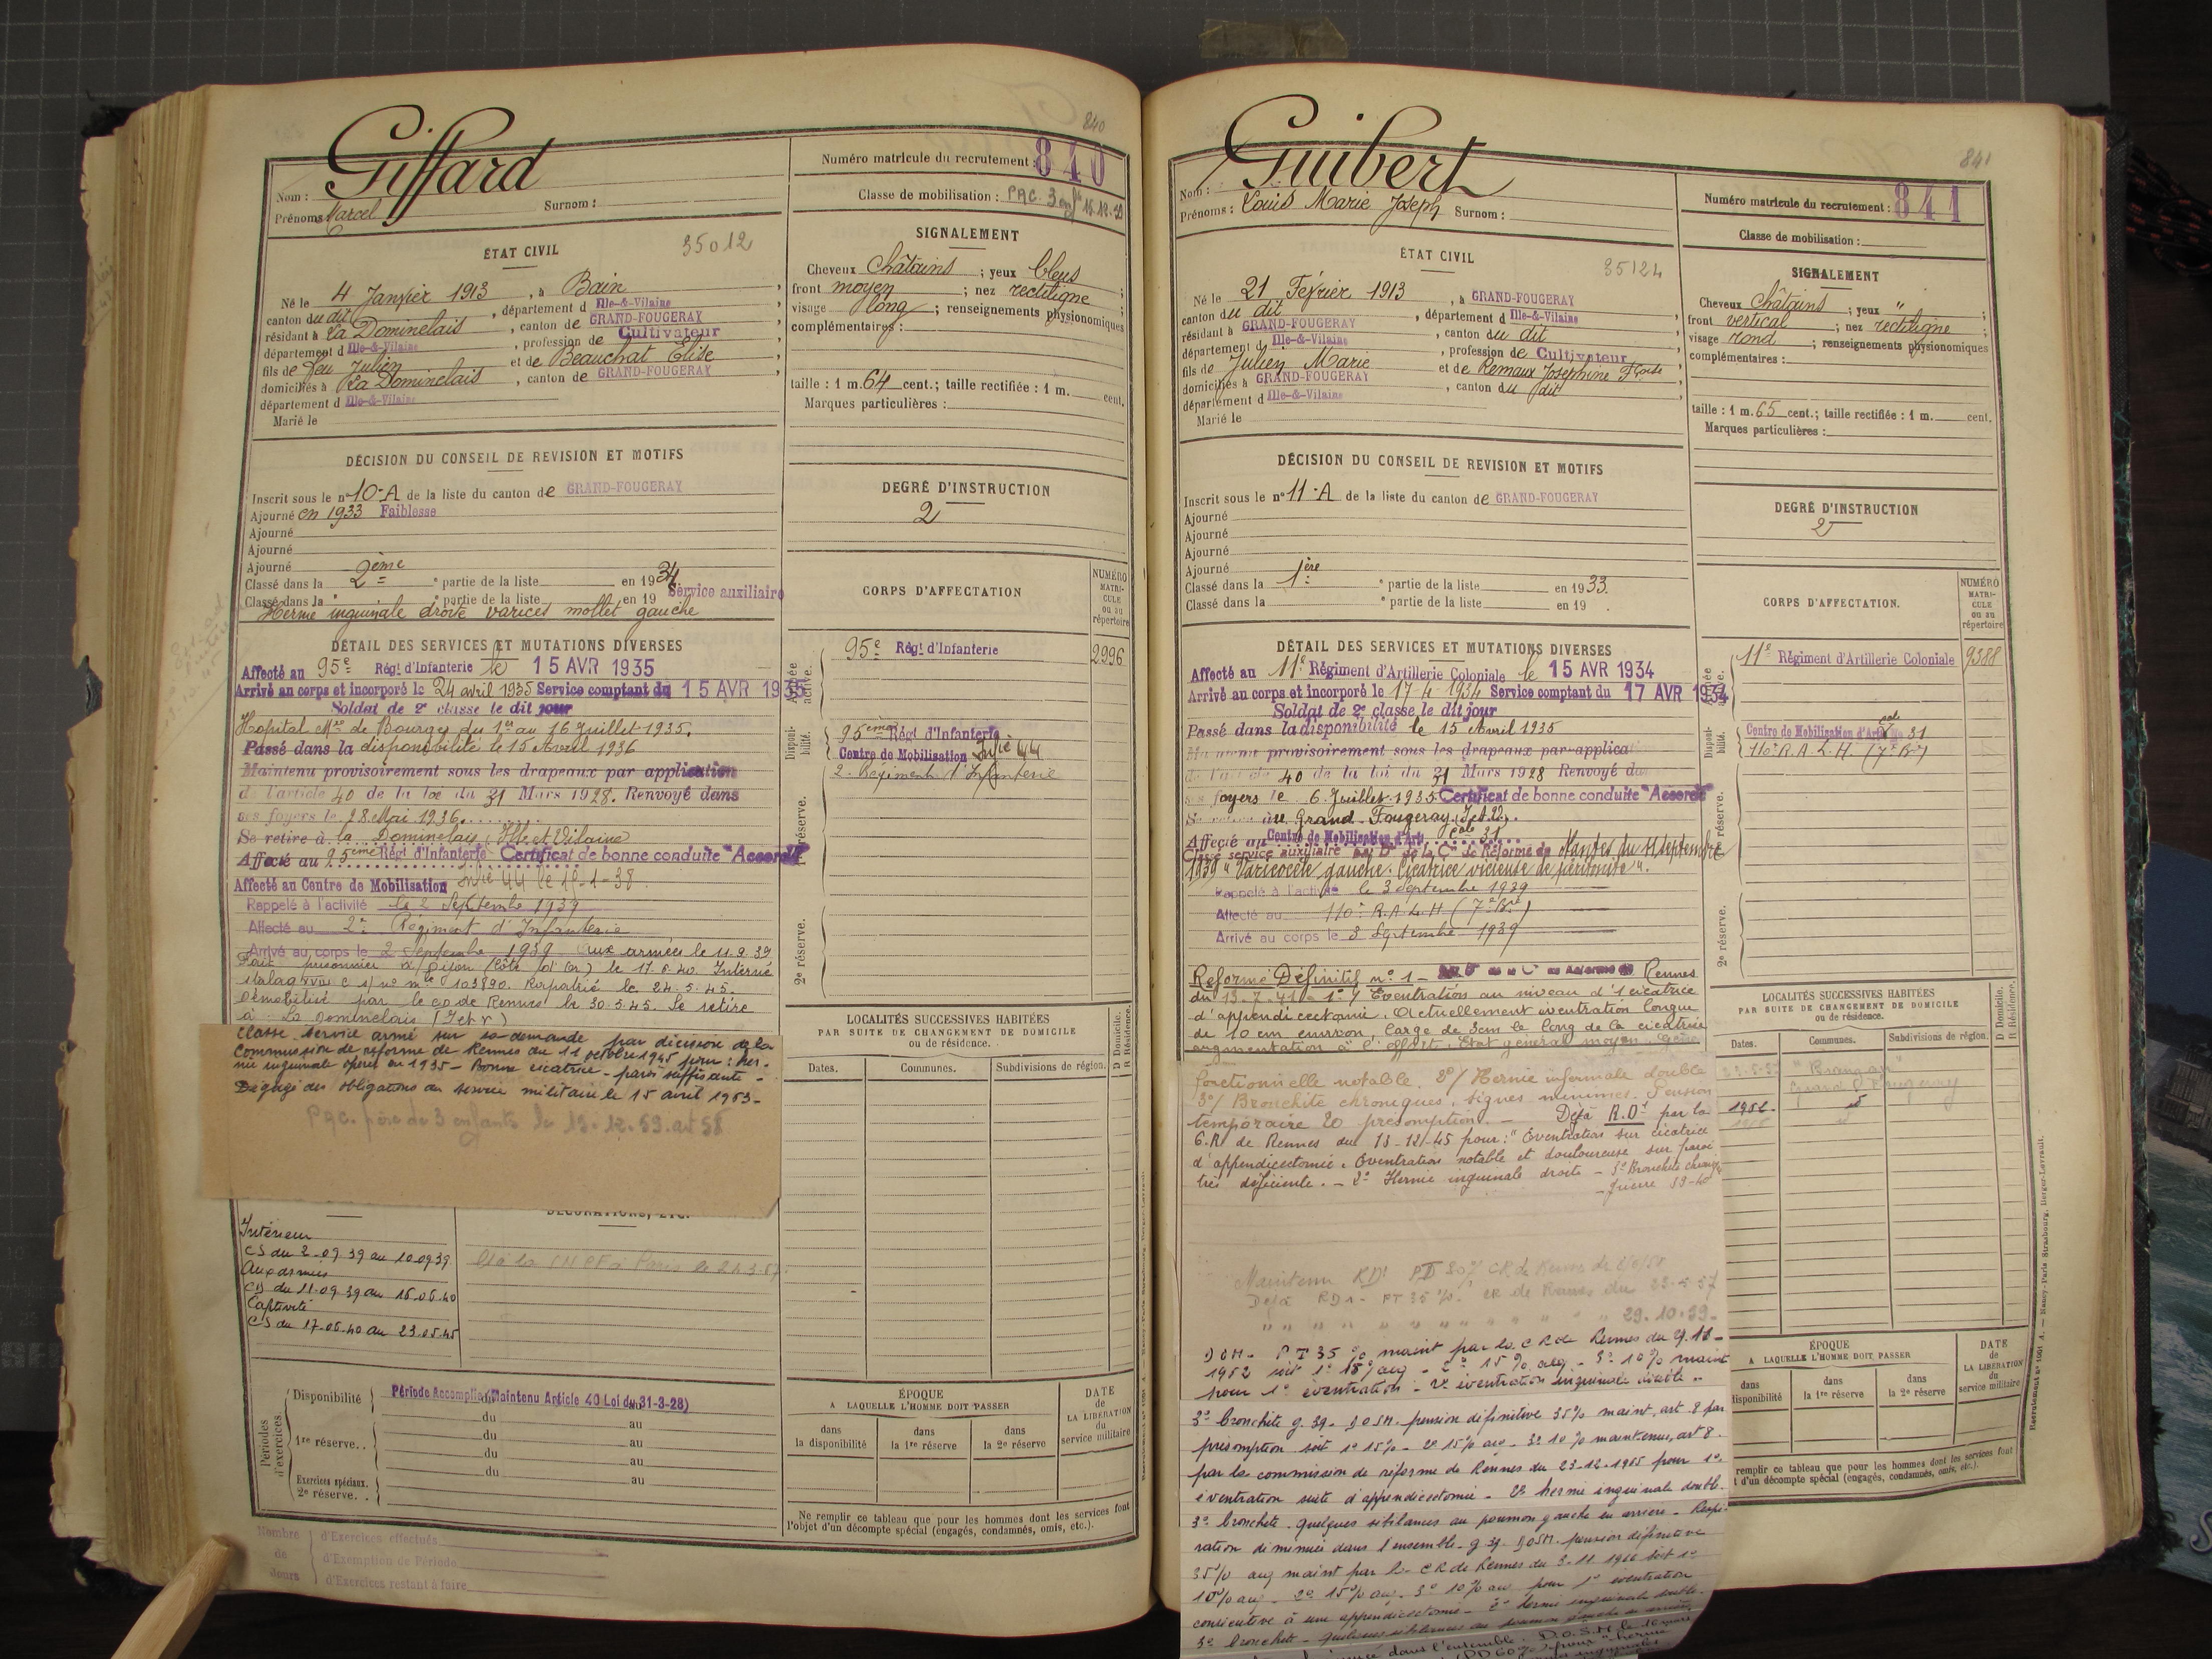 840
Giffard
Nom :
Prénoms : Marcel
Surnom :
Numéro matricule du recrutement : 840
Classe de mobilisation : PAC. 3 enfts 15.12.59
ÉTAT CIVIL
35012
Né le 4 Janvier 1913, à Bain,
canton du dit, département d Ille-&-Vilaine
résidant à La Dominelais, canton de GRAND-FOUGERAY
département d Ille-&-Vilaine, profession de Cultivateur
fils de feu Julien et de Beauchat Elise,
domiciliés à La Dominelais, canton de GRAND-FOUGERAY,
département d Ille-&-Vilaine
Marié le
SIGNALEMENT
Cheveux châtains ; yeux bleus ;
front moyen ; nez rectiligne ;
visage long ; renseignements physionomiques
complémentaires :
taille : 1 m. 64 cent.; taille rectifiée : 1 m. cent.
Marques particulières :
DÉCISION DU CONSEIL DE REVISION ET MOTIFS
Inscrit sous le n° 10-A de la liste du canton de GRAND-FOUGERAY
Ajourné en 1933 Faiblesse
Ajourné
Ajourné
Ajourné
Classé dans la 2ème partie de la liste en 1934
Classé dans la partie de la liste en 19 Service auxiliaire
Hernie inguinale droite varices mollet gauche
DEGRÉ D'INSTRUCTION
2
DÉTAIL DES SERVICES ET MUTATIONS DIVERSES
Affecté au 95e Régt d'Infanterie le 15 AVR 1935
Arrivé au corps et incorporé le 24 avril 1935 Service comptant du 15 AVR 1935
Soldat de 2e classe le dit jour
Hopital Mre de Bourges du 1er au 16 Juillet 1935.
Passé dans la disponibilité le 15 Avril 1936
Maintenu provisoirement sous les drapeaux par application
de l'article 40 de la loi du 31 Mars 1928. Renvoyé dans
ses foyers le 28 Mai 1936
Se retire à la Dominelais, Ille et Vilaine
Affecté au 95ème Régt d'Infanterie Certificat de bonne conduite "Accordé"
Affecté au Centre de Mobilisation Infie 44 le 10-1-38
Rappelé à l'activité le 2 Septembre 1939
Affecté au 2e Régiment d'Infanterie
Arrivé au corps le 2 Septembre 1939 aux armées le 11.9.39
Fait prisonnier à Dijon (Côte d'Or) le 17.6.40. Interné
stalag XVII c n° mle 103890. Rapatrié le 24.5.45.
Démobilisé par le CD de Rennes le 30.5.45. Se retire
à La Dominelais (I et V)
Classé service armé sur sa demande par décision de la
Commission de réforme de Rennes du 11 octobre 1945 pour : her-
nie inguinale opérée en 1935 - Bonne cicatrice - paroi suffisante -
Dégagé des obligations du service militaire le 15 avril 1963 -
PAC. père de 3 enfants le 15.12.59 art 58
CORPS D'AFFECTATION
NUMÉRO MATRICULE OU au répertoire
Armée active.
95e Régt d'Infanterie 2996
Disponibilité.
95ème Régt d'Infanterie
Centre de Mobilisation Infie 44
2e Régiment d'Infanterie
1re réserve.
2e réserve.
LOCALITÉS SUCCESSIVES HABITÉES
PAR SUITE DE CHANGEMENT DE DOMICILE
ou de résidence.
D Domicile.
R Résidence.
Dates. Communes. Subdivisions de région.
DÉCORATIONS, ETC.
Intérieur
CS du 2-09-39 au 10.09.39
Aux armées
CD du 11.09.39 au 16.06.40
Captivité
CS du 17.06.40 au 23.05.45
Périodes d'exercices.
Disponibilité Période Accomplie (Maintenu Article 40 Loi du 31-3-28)
du au
1re réserve. du au
du au
Exercices spéciaux. du au
2e réserve.
Nombre de Jours
d'Exercices effectués
d'Exemption de Période
d'Exercices restant à faire
ÉPOQUE
A LAQUELLE L'HOMME DOIT PASSER
dans la disponibilité
dans la 1re réserve
dans la 2e réserve
DATE de LA LIBÉRATION du service militaire
Ne remplir ce tableau que pour les hommes dont les services font
l'objet d'un décompte spécial (engagés, condamnés, omis, etc.).
841
Guibert
Nom :
Prénoms : Louis Marie Joseph Surnom :
Numéro matricule du recrutement : 841
Classe de mobilisation :
ÉTAT CIVIL
35124
Né le 21 Février 1913, à GRAND-FOUGERAY
canton du dit, département d Ille-&-Vilaine
résidant à GRAND-FOUGERAY, canton du dit
département d Ille-&-Vilaine, profession de Cultivateur
fils de Julien Marie et de Remaux Joséphine
domiciliés à GRAND-FOUGERAY, canton du dit
département d Ille-&-Vilaine
Marié le
SIGNALEMENT
Cheveux châtains ; yeux " ;
front vertical ; nez rectiligne ;
visage rond ; renseignements physionomiques
complémentaires :
taille : 1 m. 65 cent.; taille rectifiée : 1 m. cent.
Marques particulières :
DÉCISION DU CONSEIL DE REVISION ET MOTIFS
Inscrit sous le n° 11-A de la liste du canton de GRAND-FOUGERAY
Ajourné
Ajourné
Ajourné
Ajourné
Classé dans la 1ère partie de la liste en 1933.
Classé dans la partie de la liste en 19 .
DEGRÉ D'INSTRUCTION
2
DÉTAIL DES SERVICES ET MUTATIONS DIVERSES
Affecté au 11e Régiment d'Artillerie Coloniale le 15 AVR 1934
Arrivé au corps et incorporé le 17-4-1934 Service comptant du 17 AVR 1934
Soldat de 2e classe le dit jour
Passé dans la disponibilité le 15 Avril 1935
Maintenu provisoirement sous les drapeaux par applica
de l'article 40 de la loi du 31 Mars 1928 Renvoyé da
ses foyers le 6 Juillet 1935 Certificat de bonne conduite "Accordé"
Grand-Fougeray (I et V).
Affecté au Centre de Mobilisation d'Art. cole 31
Classé service auxiliaire par Don de la Con de Réforme de Nantes du 11 Septembre
1939 "Varicocèle gauche. Cicatrice vicieuse de péritonite".
Rappelé à l'activité le 3 Septembre 1939
Affecté au 110e R.A.L.H. (7e Bie)
Arrivé au corps le 3 Septembre 1939
Réformé Définitif n° 1 - Rennes
du 13-7-41 - 1°/ Eventration au niveau d'1 cicatrice
d'appendicectomie. Actuellement éventration longue
de 10 cm environ, large de 3cm le long de la cicatrice
augmentation à l'effort. Etat général moyen. Gêne
fonctionnelle notable. 2°/ Hernie inguinale double
3°/ Bronchite chronique, signes minimes. Pension
temporaire 20 présomption. - Déjà R.D1 par la
C.R de Rennes du 13-12-45 pour : "Eventration sur cicatrice
d'appendicectomie. Eventration notable et douloureuse sur paroi
très déficiente. - 2° Hernie inguinale droite - 3° Bronchite chronique
- guerre 39-40
Maintenu RD1 PT 30% CR de Rennes
Déjà RD1 - PT 35%. CR de Rennes du 23-5-57
" " " " " " " " 29.10.59 -
PT 35% maint par la CR de Rennes du
1962 soit 1° 15% aug - 2° 15% aug - 3° 10% maint
pour 1° éventration - 2° éventration inguinale double -
3° bronchite g. 39 - DOSM. pension définitive 35% maint. art 8 par
présomption soit 1° 15% - 2° 15% aug - 3° 10% maintenue, art 8.
par la commission de réforme de Rennes du 23-12-1965 pour 1°
éventration suite d'appendicectomie - 2° hernie inguinale double.
3° bronchite. quelques sibilances au poumon gauche en arrière - Respi-
ration diminuée dans l'ensemble - g 39 DOSM. pension définitive
35% aug maint par la CR de Rennes du 3-11 1966 soit 1°
10% aug - 2° 15% aug - 3° 10% aug pour 1° éventration
consécutive à une appendicectomie - 2° hernie inguinale double.
3° bronchite - quelques sibilances au poumon gauche en arrière
dans l'ensemble. D.O.S.M le
CORPS D'AFFECTATION.
NUMÉRO MATRICULE OU au répertoire
11e Régiment d'Artillerie Coloniale 9388
Disponibilité.
Centre de Mobilisation d'Art cole 31
110e R.A.L.H. (7e Bie)
1re réserve.
2e réserve.
LOCALITÉS SUCCESSIVES HABITÉES
PAR SUITE DE CHANGEMENT DE DOMICILE
ou de résidence.
D Domicile.
R Résidence.
Dates. Communes. Subdivisions de région.
Grand Fougeray
1962.
ÉPOQUE
A LAQUELLE L'HOMME DOIT PASSER
dans disponibilité
dans la 1re réserve
dans la 2e réserve
DATE de LA LIBÉRATION du service militaire
remplir ce tableau que pour les hommes dont les services font
t d'un décompte spécial (engagés, condamnés, omis, etc.).
Recrutement n° 1001 A. — Nancy-Paris-Strasbourg, Berger-Levrault.